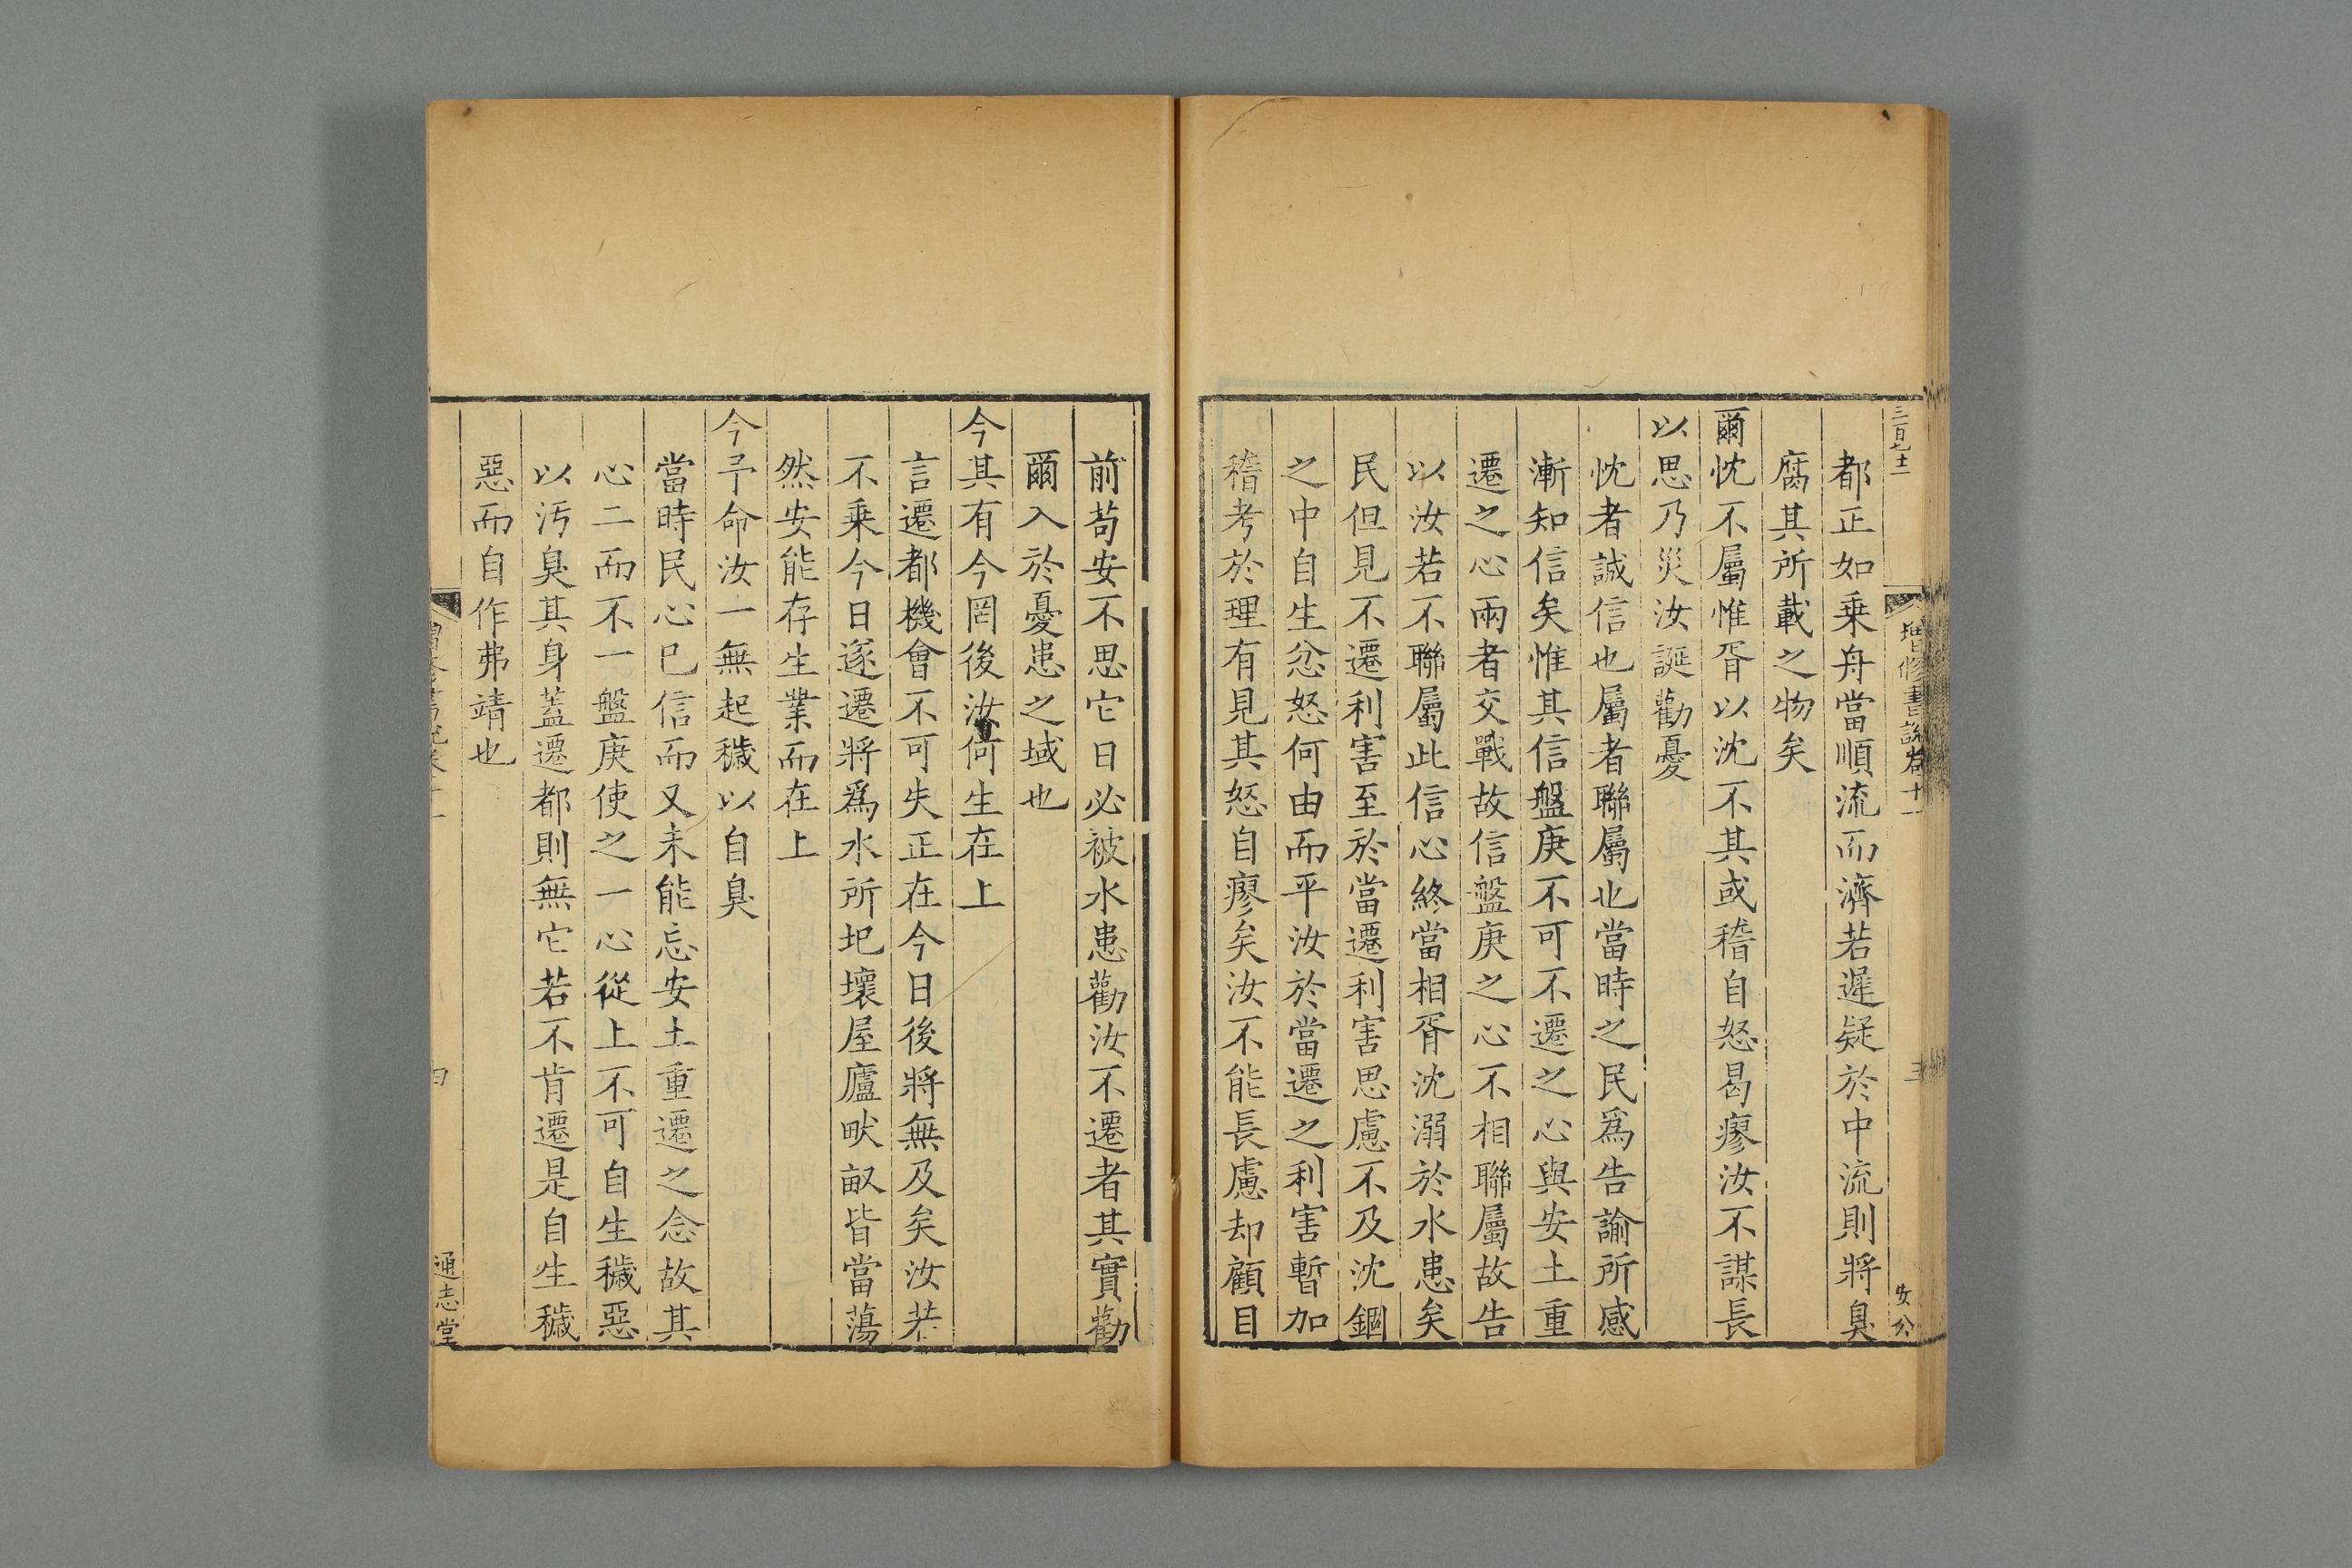 三百七十一
增修書說卷十一
三
都正如乗舟當順流而濟若遲疑於中流則將臭
腐其所載之物矣
爾忱不屬惟胥以沈不其或稽自怒曷瘳汝不謀長
以思乃災汝誕勸憂
忱者誠信也屬者聯屬也當時之民爲告諭所感
漸知信矣惟其信盤庚不可不遷之心與安土重
遷之心兩者交戰故信盤庚之心不相聯屬故告
以汝若不聯屬此信心終當相胥沈溺於水患矣
民但見不遷利害至於當遷利害思慮不及沈錮
之中自生忿怒何由而平汝於當遷之利害暫加
稽考於理有見其怒自瘳矣汝不能長慮却顧目
前苟安不思它日必被水患勸汝不遷者其實勸
爾入於憂患之域也
今其有今罔後汝何生在上
言遷都機會不可失正在今日後將無及矣汝若
不乗今日遂遷將爲水所圯壞屋廬畎畝皆當蕩
然安能存生業而在上
今予命汝一無起穢以自臭
當時民心已信而又未能忘安土重遷之念故其
心二而不一盤庚使之一心從上不可自生穢惡
以汚臭其身蓋遷都則無它若不肯遷是自生穢
惡而自作弗靖也
通志堂